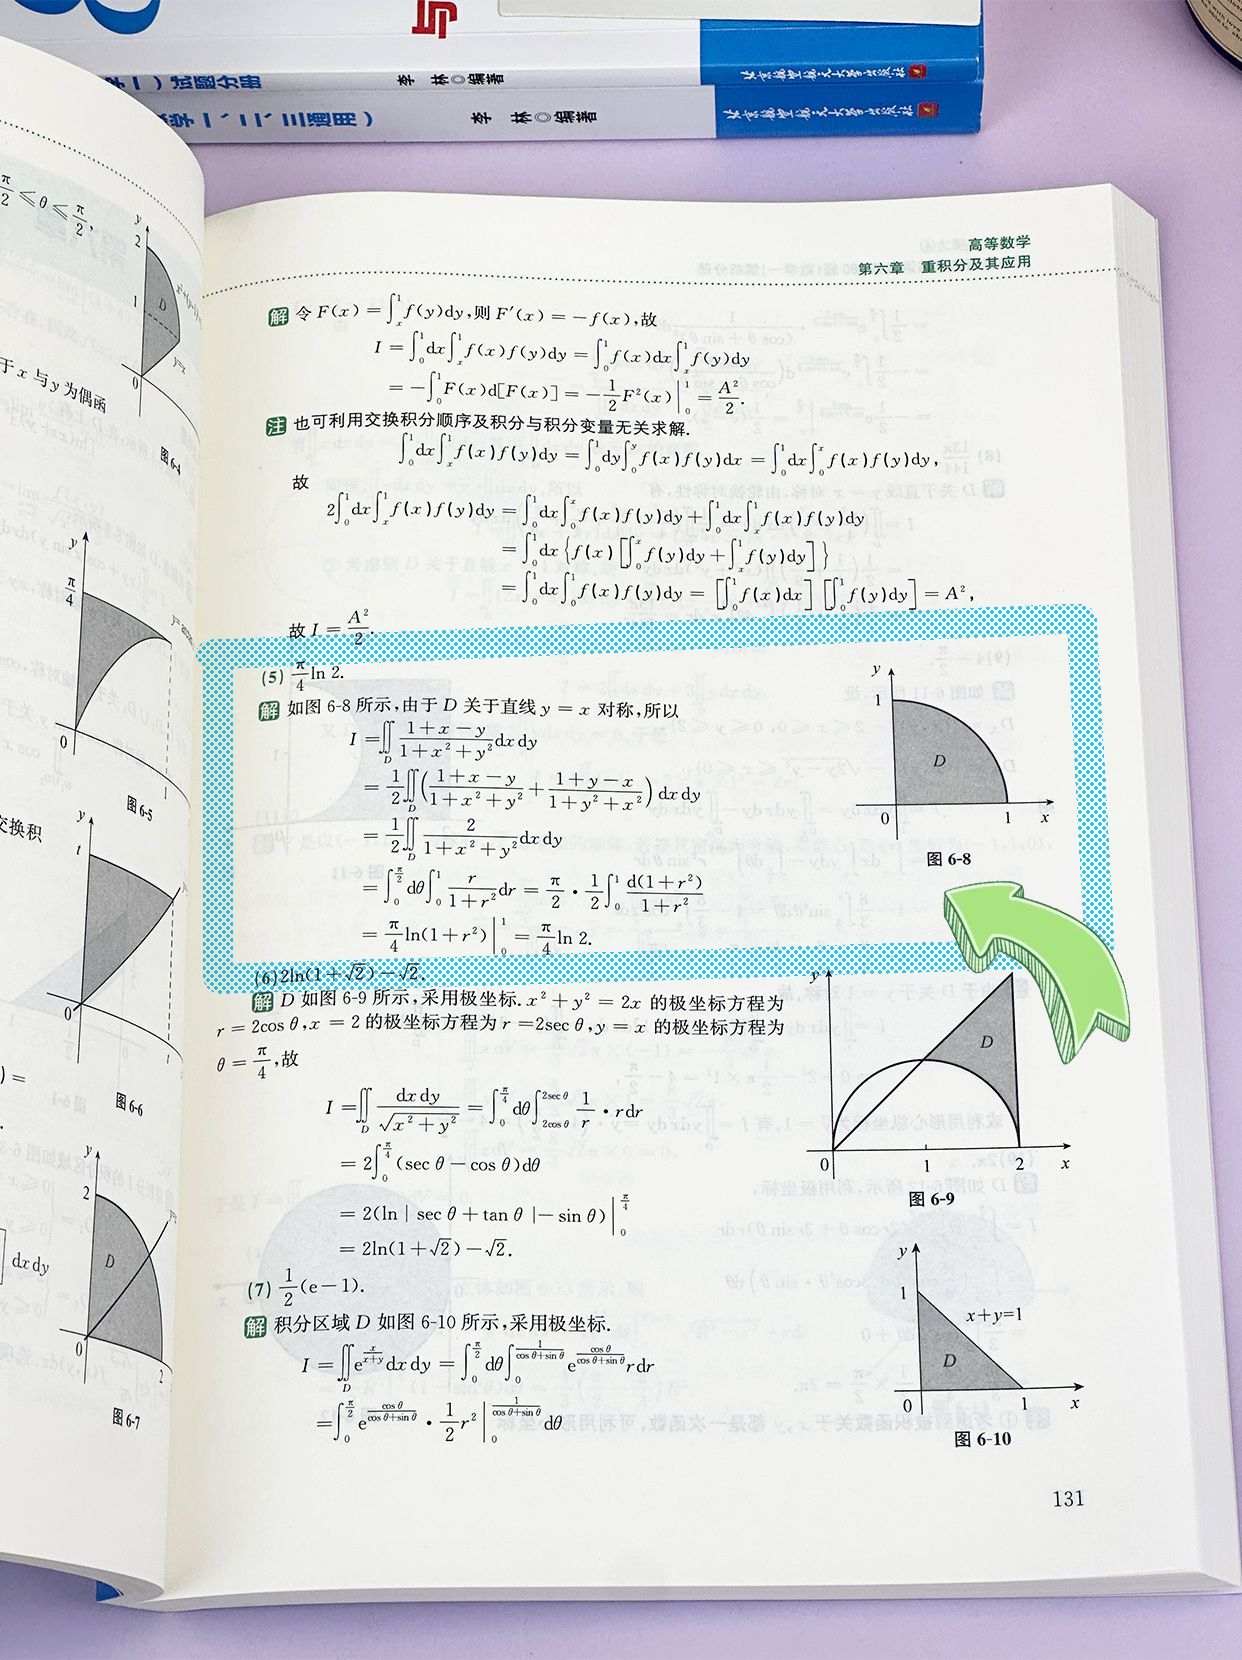 与
学一）试题分册
李 林◎编著
北京航空航天大学出版社
学一、二、三通用）
李 林◎编著
北京航空航天大学出版社
π/2≤θ≤π/2,
y
2
1
D
0
y=x
于x与y为偶函
图6-4
y
π/4
0
1
图6-5
交换积
y
t
0
图6-6
y
2
D
0
2
dxdy
图6-7
高等数学
第六章 重积分及其应用
解 令F(x)=∫_x^1 f(y)dy,则F′(x)=-f(x),故
I=∫_0^1 dx∫_x^1 f(x)f(y)dy=∫_0^1 f(x)dx∫_x^1 f(y)dy
=-∫_0^1 F(x)d[F(x)]=-1/2 F²(x)|_0^1=A²/2.
注 也可利用交换积分顺序及积分与积分变量无关求解.
∫_0^1 dx∫_x^1 f(x)f(y)dy=∫_0^1 dy∫_0^y f(x)f(y)dx=∫_0^1 dx∫_0^x f(x)f(y)dy,
故
2∫_0^1 dx∫_x^1 f(x)f(y)dy=∫_0^1 dx∫_0^x f(x)f(y)dy+∫_0^1 dx∫_x^1 f(x)f(y)dy
=∫_0^1 dx{f(x)[∫_0^x f(y)dy+∫_x^1 f(y)dy]}
=∫_0^1 dx∫_0^1 f(x)f(y)dy=[∫_0^1 f(x)dx][∫_0^1 f(y)dy]=A²,
故I=A²/2.
(5) π/4 ln 2.
解 如图6-8所示,由于D关于直线y=x对称,所以
I=∬_D (1+x-y)/(1+x²+y²) dxdy
=1/2∬_D((1+x-y)/(1+x²+y²)+(1+y-x)/(1+y²+x²))dxdy
=1/2∬_D 2/(1+x²+y²) dxdy
=∫_0^{π/2} dθ∫_0^1 r/(1+r²) dr=π/2·1/2∫_0^1 d(1+r²)/(1+r²)
=π/4 ln(1+r²)|_0^1=π/4 ln 2.
y
1
D
0
1
x
图6-8
(6)2ln(1+√2)-√2.
解 D如图6-9所示,采用极坐标.x²+y²=2x的极坐标方程为
r=2cos θ,x=2的极坐标方程为r=2sec θ,y=x的极坐标方程为
θ=π/4,故
I=∬_D dxdy/√(x²+y²)=∫_0^{π/4} dθ∫_{2cos θ}^{2sec θ} 1/r·rdr
=2∫_0^{π/4}(sec θ-cos θ)dθ
=2(ln|sec θ+tan θ|-sin θ)|_0^{π/4}
=2ln(1+√2)-√2.
y
D
0
1
2
x
图6-9
(7) 1/2(e-1).
解 积分区域D如图6-10所示,采用极坐标.
I=∬_D e^{x/(x+y)} dxdy=∫_0^{π/2} dθ∫_0^{1/(cos θ+sin θ)} e^{cos θ/(cos θ+sin θ)} rdr
=∫_0^{π/2} e^{cos θ/(cos θ+sin θ)}·1/2 r²|_0^{1/(cos θ+sin θ)} dθ
y
1
x+y=1
D
0
1
x
图6-10
131